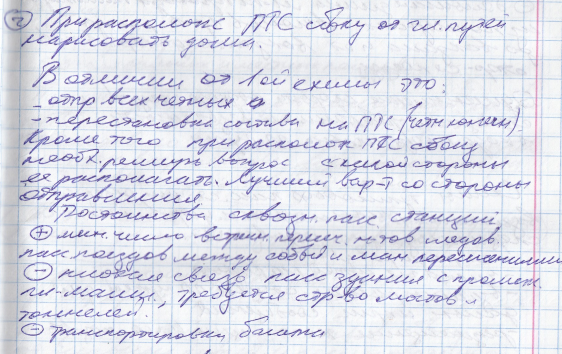 ② При располож ПТС сбоку от гл. путей
нарисовать дома.
В отличии от 1ой схемы это:
- отпр всех четных
- перестановка состава на ПТС (четн конечн).
Кроме того при располож ПТС сбоку
необх. решить вопрос с какой стороны
ее располагать. Лучший вар-т со стороны
отправления.
Достоинства сквозн. пасс. станций
⊕ мин. число встречн. перес. м-тов следов.
пасс поездов между собой и ман передвижениями
⊖ плохая связь пасс здания с
пл-
тоннелей.
⊖ транспортировки багажа